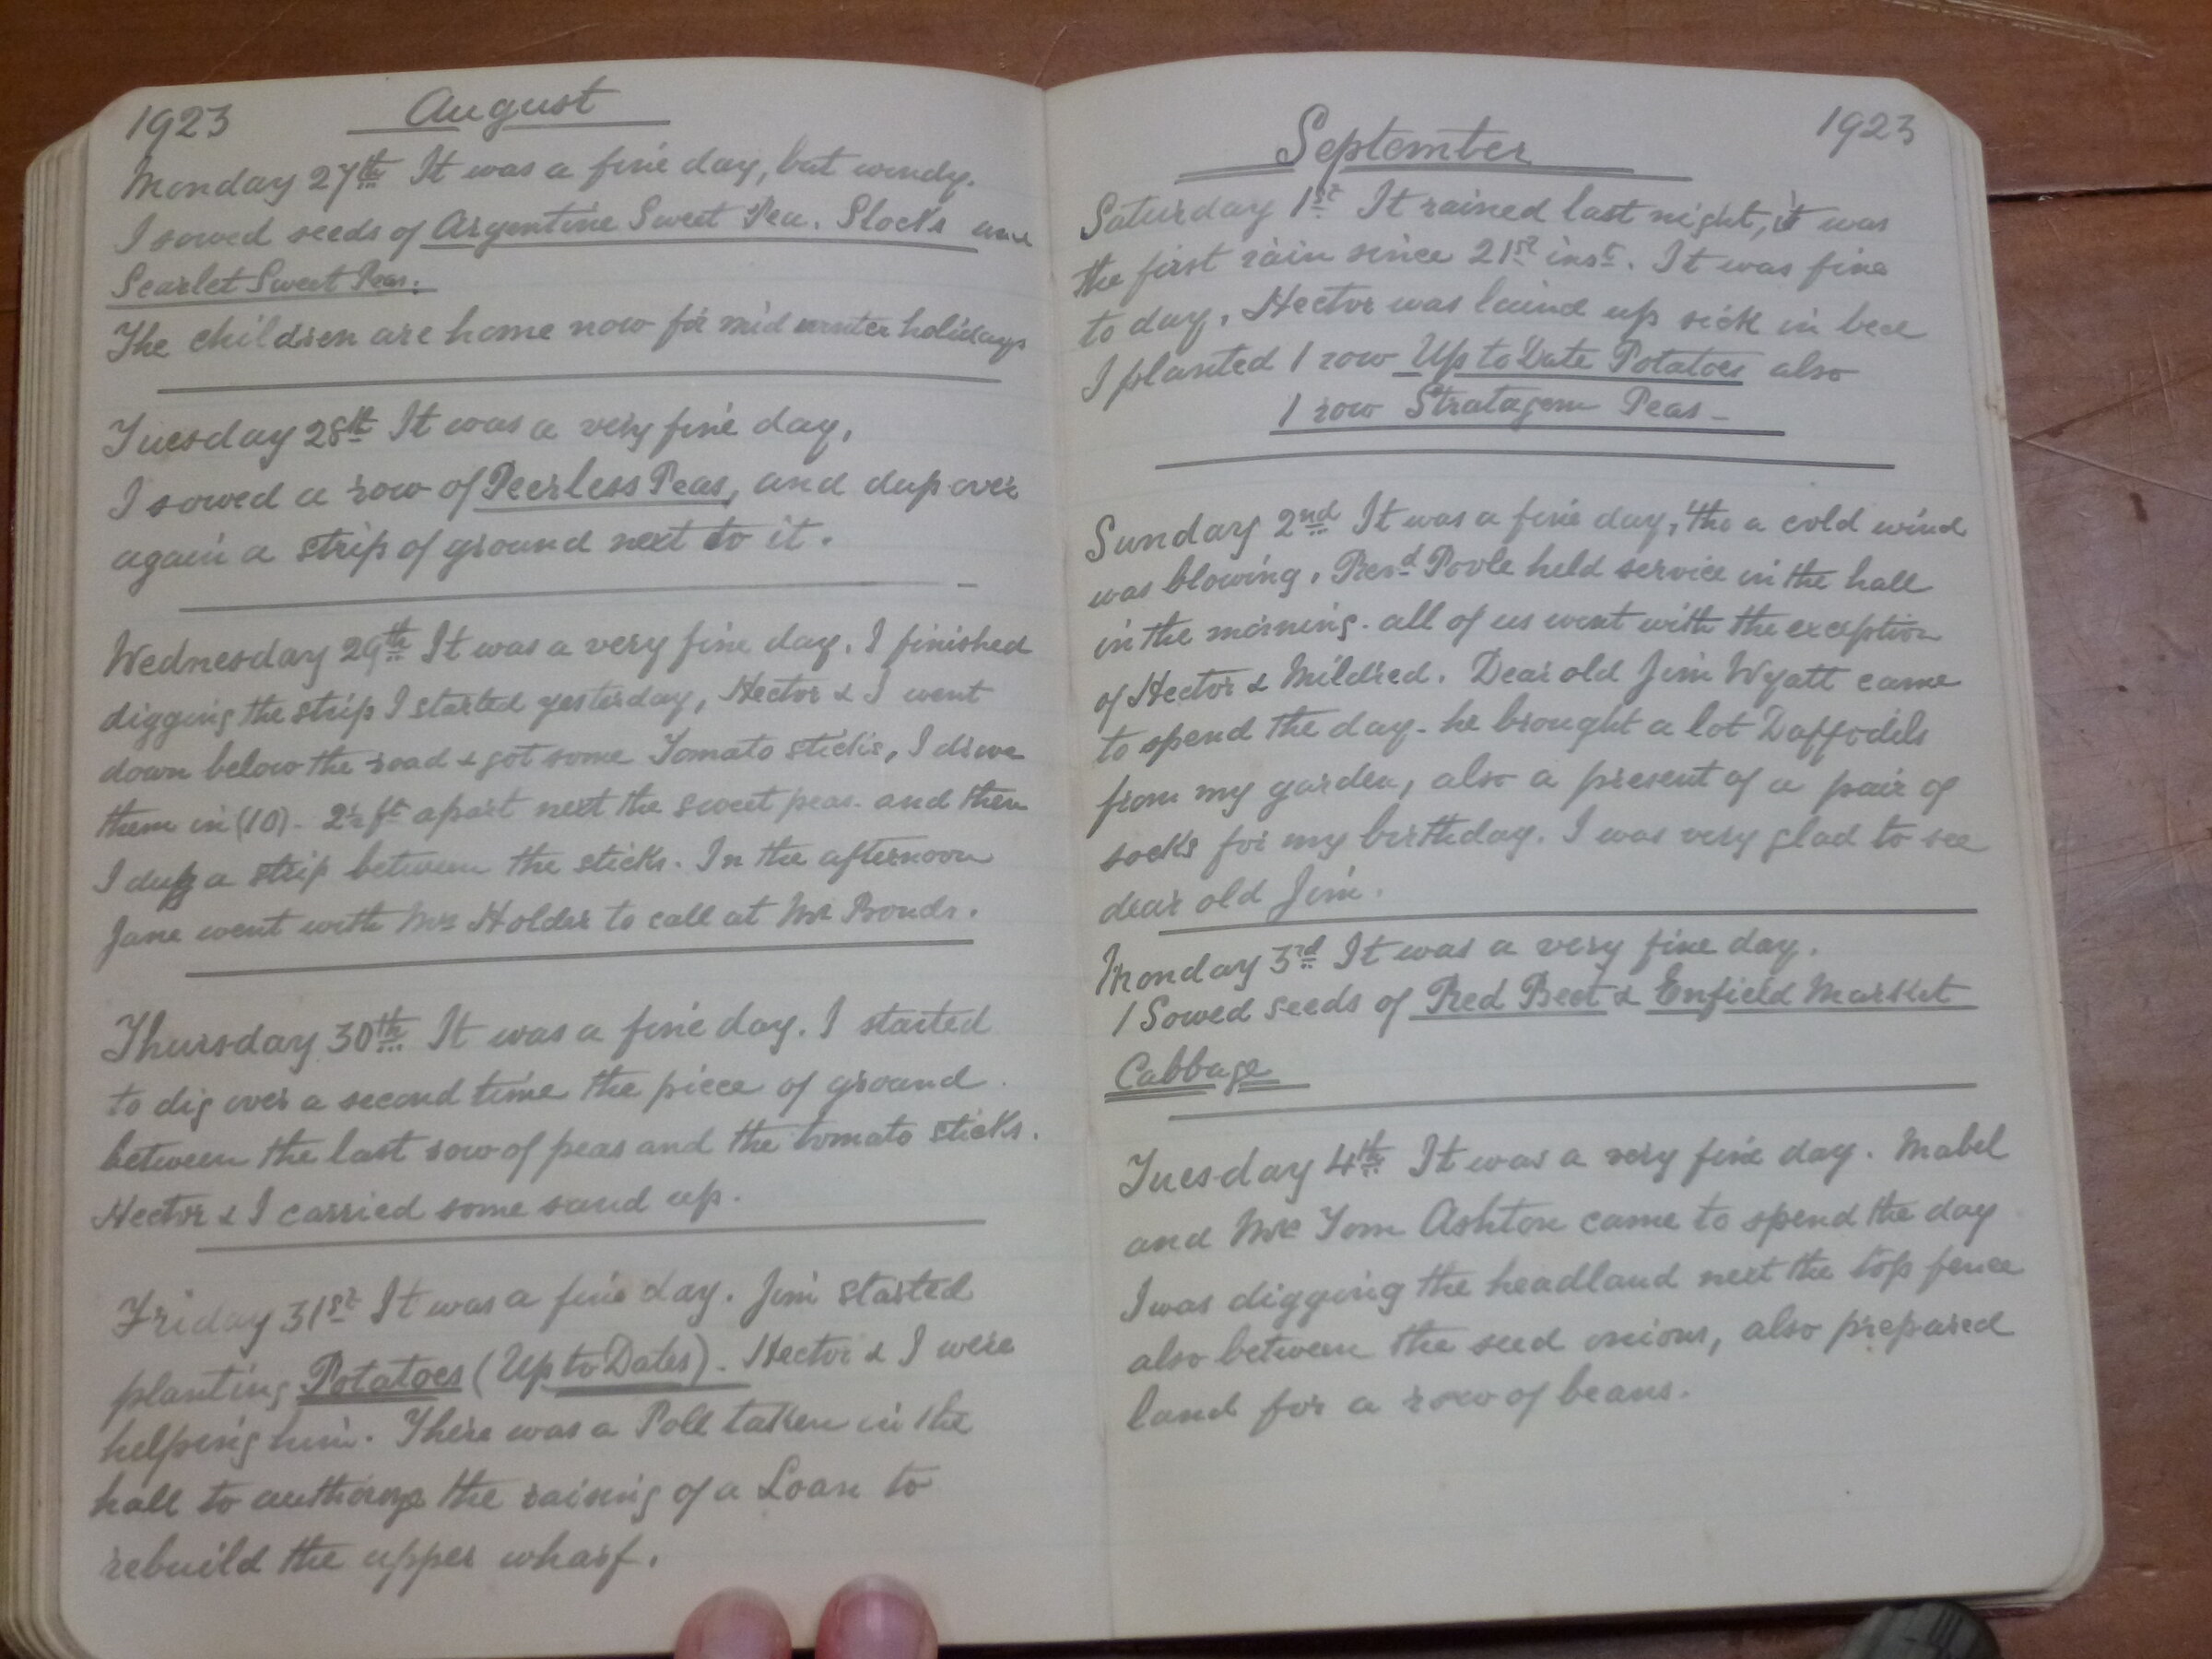 1923 August
Monday 27th It was a fine day, but windy.
I sowed seeds of Argentine Sweet Pea. Stocks and
Scarlet Sweet Peas.
The children are home now for mid winter holidays
Tuesday 28th It was a very fine day,
I sowed a row of Peerless Peas, and dug over
again a strip of ground next to it.
Wednesday 29th It was a very fine day. I finished
digging the strip I started yesterday, Hector & I went
down below the road & got some Tomato sticks, I drove
them in (10) - 2½ ft apart next the sweet peas. and then
I dug a strip between the sticks. In the afternoon
Jane went with Mrs Holder to call at Mr Bonds.
Thursday 30th It was a fine day. I started
to dig over a second time the piece of ground
between the last row of peas and the tomato sticks.
Hector & I carried some sand up.
Friday 31st It was a fine day. Jim started
planting Potatoes (Up to Dates). Hector & I were
helping him. There was a Poll taken in the
hall to authorize the raising of a Loan to
rebuild the upper wharf.
September 1923
Saturday 1st It rained last night, it was
the first rain since 21st inst. It was fine
to day, Hector was laind up sick in bed
I planted 1 row Up to Date Potatoes also
1 row Stratagem Peas -
Sunday 2nd It was a fine day, tho a cold wind
was blowing, Revd Poole held service in the hall
in the morning. all of us went with the exception
of Hector & Mildred. Dear old Jim Wyatt came
to spend the day - he brought a lot Daffodils
from my garden, also a present of a pair of
socks for my birthday. I was very glad to see
dear old Jim.
Monday 3rd It was a very fine day.
I Sowed seeds of Red Beet & Enfield Market
Cabbage
Tuesday 4th It was a very fine day. Mabel
and Mrs Tom Ashton came to spend the day
I was digging the headland next the top fence
also between the seed onions, also prepared
land for a row of beans.